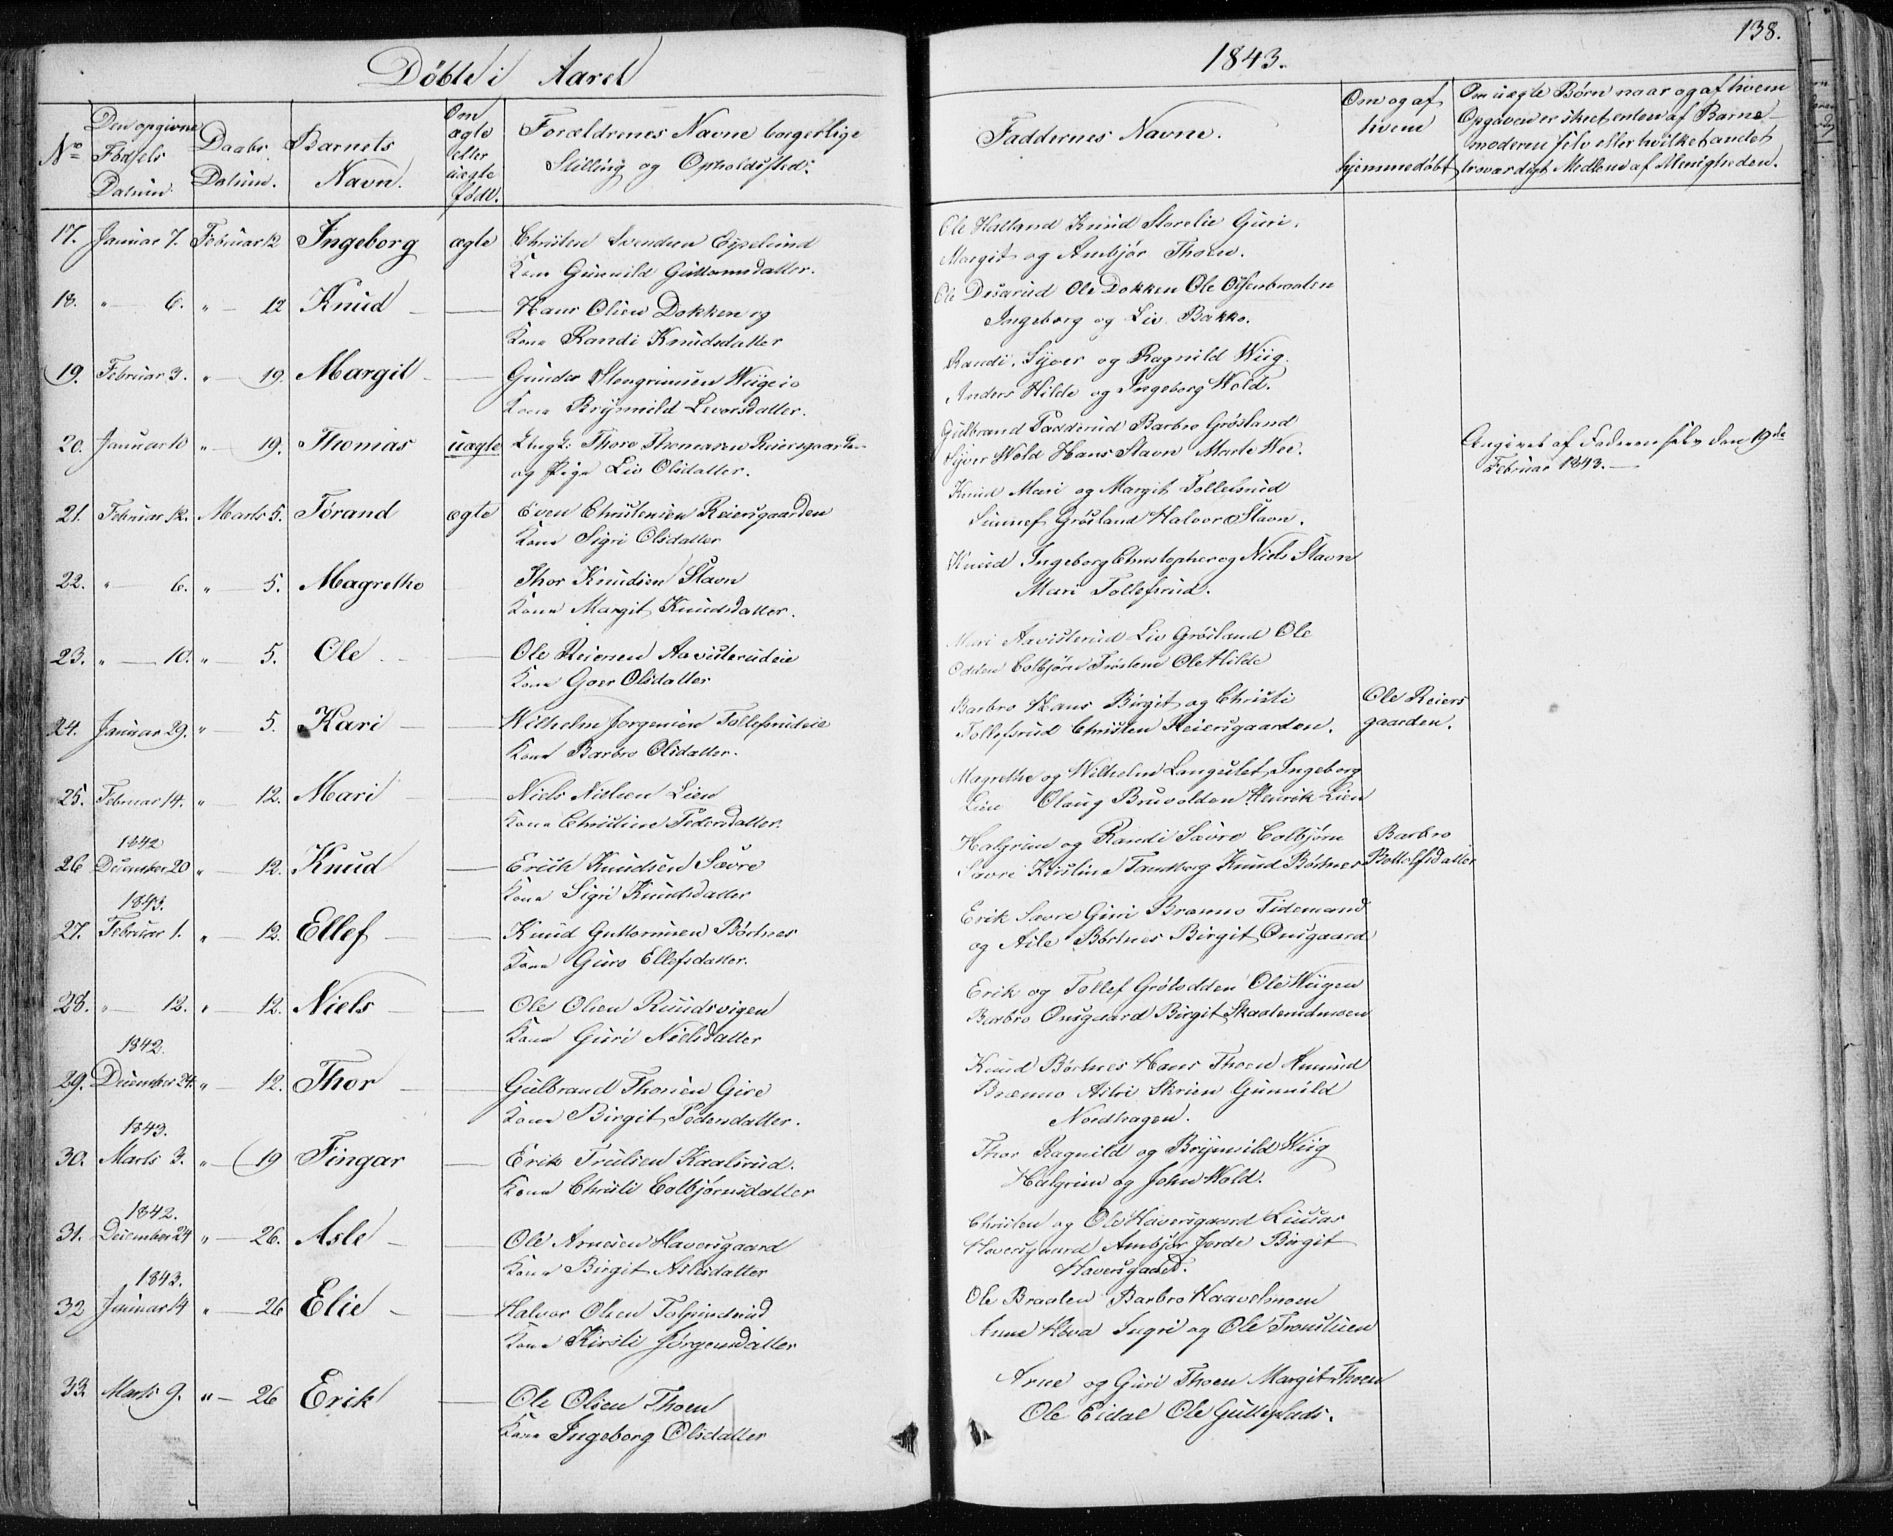 138.
Døbte i Aaret
1843.
No
Den opgivne Fødsels Datum.
Daabs Datum.
Barnets Navn.
Om ægte eller uægte født.
Forældrenes Navne borgerlige Stilling og Opholdssted.
Faddernes Navne.
Om og af hvem hjemmedøbt
Om uægte Børn naar og af hvem Opgaven er skeet enten af Barnemoderen selv eller hvilket andet troværdigt Medlem af Menigheden.
17. Januar 7. Februar 12 Ingeborg ægte Christen Svendsen
Kone Gunnild Guttormsdatter.
Ole Halland Knud Storelie Guri.
Margit og Ambjør Thoen.
18. " — 6. " — 12 Knud — — Hans Olsen Dokken og
Kone Randi Knudsdatter
Ole Ole Dokken Ole
Ingeborg og Liv Bakke.
19. Februar 3. " — 19. Margit — — Gunder Stengrimsen Wiigeie
Kone Brynnild Levorsdatter.
Randi, Syver og Ragnild Wiig.
Anders Hilde og Ingeborg Wold.
20. Januar 10 " — 19. Thomas uægte Ungk: Thore Thomasen Reiersgaard
og Pige Liv Olsdatter.
Gulbrand Barbro Grøsland
Syver Wold Hans Stavn Marte
Angivet af Faderen selv den 19de
Februar 1843. —
21. Februar 12. Marts 5. Tørand ægte Even Christensen Reiersgaarden
Kone Sigri Olsdatter
Knud Mari og Margit Tollefsrud
Sunnef Grøsland Halvor Stavn.
22. " — 6. " — 5. Magrethe — Thor Knudsen Stavn
Kone Margit Knudsdatter.
Knud Ingeborg Christopher og Niels Stavn
Mari Tollefsrud.
23. " — 10. " — 5. Ole — — Ole Reiersen Aavisterudeie
Kone Goer Olsdatter
Mari Aavisterud Liv Grøsland Ole
Odden Colbjørn Ole Hilde
24. Januar 29. " — 5. Kari — — Wilhelm Jorgensen Tollefsrudeie
Kone Barbro Olsdatter.
Barbro Hans Birgit og Christi
Tollefsrud Christen Reiersgaarden.
Ole Reiers
gaarden.
25. Februar 14. " — 12. Mari — — Niels Nielsen Lien
Kone Christine Pedersdatter.
Magrethe og Wilhelm Langeslet Ingeborg
Lien Olaug Bruvolden Henrik Lien
1842
26 December 20 " — 12. Knud — Erich Knudsen Sævre
Kone Sigri Knudsdatter
Halgrim og Randi Sævre Colbjørn
Sævre Kirstine Tandberg Knud Børtnes
Barbro
Bottolfsdatter
1843.
27. Februar 1. " — 12. Ellef — — Knud Guttormsen Børtnes
Kone Guro Ellefsdatter.
Erik Sævre Guri Brænno Tidemand
og Aile Børtnes Birgit Ønsgaard
28. " — 12. " — 12. Niels — — Ole Olsen Ruudsvigen
Kone Guri Nielsdatter
Erik og Tollef Grøtodden Ole Wiigen
Barbro Ønsgaard Birgit
1842.
29. December 24. " — 12. Thor — — Gulbrand Thorsen Gire
Kone Birgit Pedersdatter.
Knud Børtnes Hans Thoen Amund
Brænno Astri Skrien Gunnild
Nordhagen.
1843.
30. Marts 3. " — 19 Fingar — Erik Trulsen Kaalsrud.
Kone Christi Colbjørnsdatter
Thor Ragnild og Brynnild Wiig
Halgrim og John Wold.
1842.
31. December 24 " — 26. Asle — — Ole Arnesen Haversgaard
Kone Birgit Aslesdatter
Christen og Ole Haversgaard
Haversgaard Ambjør Jorde Birgit
Haversgaard.
1843.
32 Januar 14 " — 26 Elie — — Halvor Olsen
Kone Kirsti Jørgensdatter
Ole Braaten Barbro Haavelmoen
Anne Hova Sugri og Ole Tronslien
33. Marts 9. " — 26 Erik — Ole Olsen Thoen
Kone Ingeborg Olsdatter
Arne og Guri Thoen Margit Thoen
Ole Eidal Ole Gulleplads.